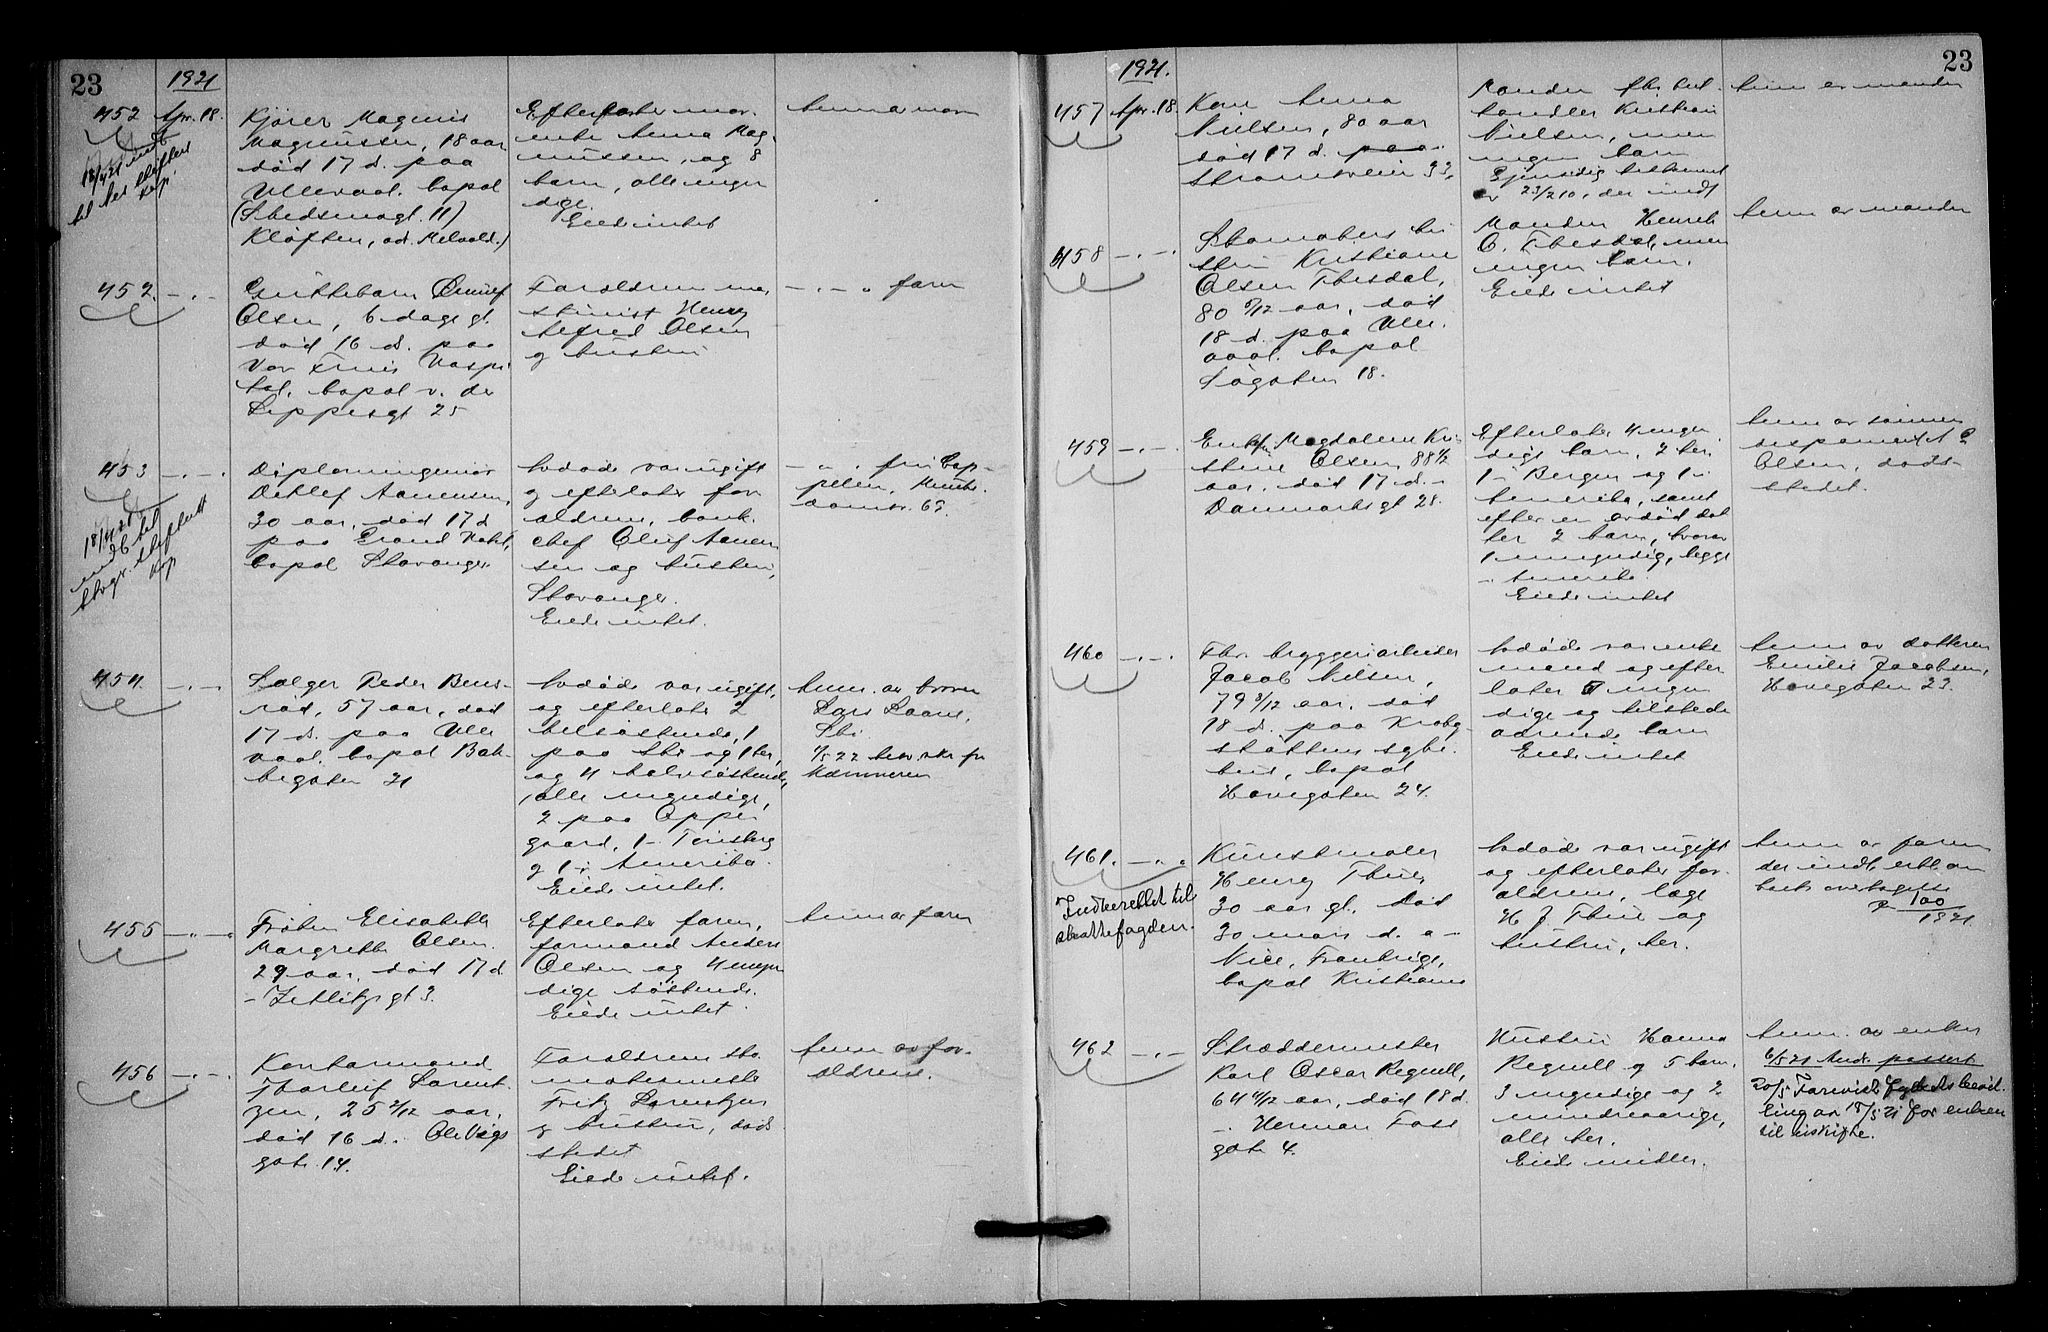 23
1921
452 Apr. 18.
18/4 21 indb
til
Kjører Magnus
Magnussen, 18 aar
død 17 d. paa
Ullevaal. bopæl
Kløften,
Efterlater mor
enke Anna Mag-
nussen, og 8
barn, alle myn
dige.
Eiede intet
Anm a mor
452. -.-
Guttebarn
Olsen, 6 dage gl.
død 16 d. paa
Vor Frues Hospi
tal, bopæl v. der
Lippesgt 25
Forældrene ma
skinist Henry
Alfred Olsen
og hustru
-.- farn
453 -.-
18/4 21
indb til
Stvgr. skifterett
Kop
Diplomingeniør
Detlef Aanensen,
30 aar, død 17 d
paa Grand Hotel,
bopæl Stavanger
Avdøde var ugift
og efterlater for
ældrene, bank
chef Oluf Aanen
sen og hustru,
Stavanger.
Eiede intet.
- " - fru Cap-
pelen,
454. -.-
Sælger Peder Bens-
rød, 57 aar, død
17 d. paa Ulle
vaal. bopæl Bak-
kegaten 21
Avdøde var ugift,
og efterlater 2
helsøskende, 1
paa Ski og 1 her,
og 4 halvsøskende,
alle myndige,
2 paa Oppe
gaard, 1 - Tønsberg
og 1 i Amerika.
Eiede intet.
Anm. av broren
Lars
Ski
Kæmneren
455 -.-
Frøken Elisabeth
Margrethe Olsen.
29 aar, død 17 d
- Zetlitzgt 3.
Efterlater faren,
formand Anders
Olsen og 4 myn
dige søskende.
Eiede intet.
Anm av faren
456 -.-
Kontormand
Thorleif Lorent
zen, 25 2/12 aar,
død 16 d. Ole Vigs
gate 14.
Forældrene sko
makermester
Fritz Lorentzen
og hustru, døds
stedet
Eiede intet.
Anm av for-
ældrene.
1921.
23
457 Apr. 18.
Kone Anna
Nielsen, 80 aar
død 17 d. paa
Strømsveien 33.
Manden fhv.
handler Kristian
Nielsen, men
ingen barn
Gjensidig testament
av 23/2 10, der indl
Anm av manden
458 -.-
Skomakers hu
stru Kristiane
Olsen Thesdal,
80 5/12 aar, død
18 d. paa Ulle
vaal. bopæl
Søgaten 18.
Manden Henrik
O. Thesdal, men
ingen barn.
Eiede intet
Anm av manden
459 -.-
Enkefru Magdalene Kri
stine Olsen, 88 1/2
aar, død 17 d. -
Danmarks gt 28.
Efterlater 4 myn
dige barn, 2 her,
1 i Bergen og 1 i
Amerika, samt
efter en avdød dat
ter 2 barn, hvorav
1 umyndig, begge
i Amerika.
Eiede intet
Anm av sønnen
Olsen, døds-
stedet.
460 -.-
Fhv. bryggeriarbeider
Jacob Nilsen,
79 8/12 aar. død
18 d. paa Krohg
støttens syke
hus, bopæl
Hovegaten 24.
Avdøde var enke
mand og efter
later 5 myn
dige og tilstede
værende barn
Eiede intet
Anm av datteren
Emilie Jacobsen,
Hovegaten 23.
461. -.-
Indberettet til
skattefogden.
Kunstmaler
Henry Thiis
30 aar gl. død
30 mars d. a -
Nice, Frankrige,
bopæl Kristiania
Avdøde var ugift
og efterlater for
ældrene, læge
H J Thiis og
hustru, her.
Anm av faren
der indl. erkl om
bosk overtagelse
P 100
1921
462 -.-
Skræddermester
Karl Oscar Regnell,
64 4/12 aar, død 18 d.
- Herman Foss
gate 4.
Hustru Hanna
Regnell og 5 barn,
3 myndige og 2
mindreaarige,
alle her.
Eiede midler.
Anm. av enken
6/5 21 And. passert
20/5 Forevist
ling av 18/5 21 for enken
til uskifte.